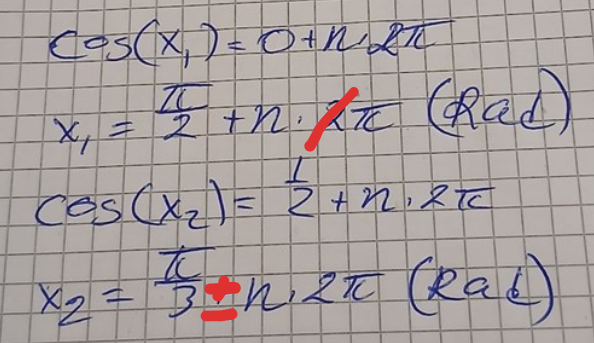 cos(x₁)=0+n·2π
x₁ = π/2 +n·2π (Rad)
cos(x₂)= 1/2 +n·2π
x₂ = π/3 ± n·2π (Rad)